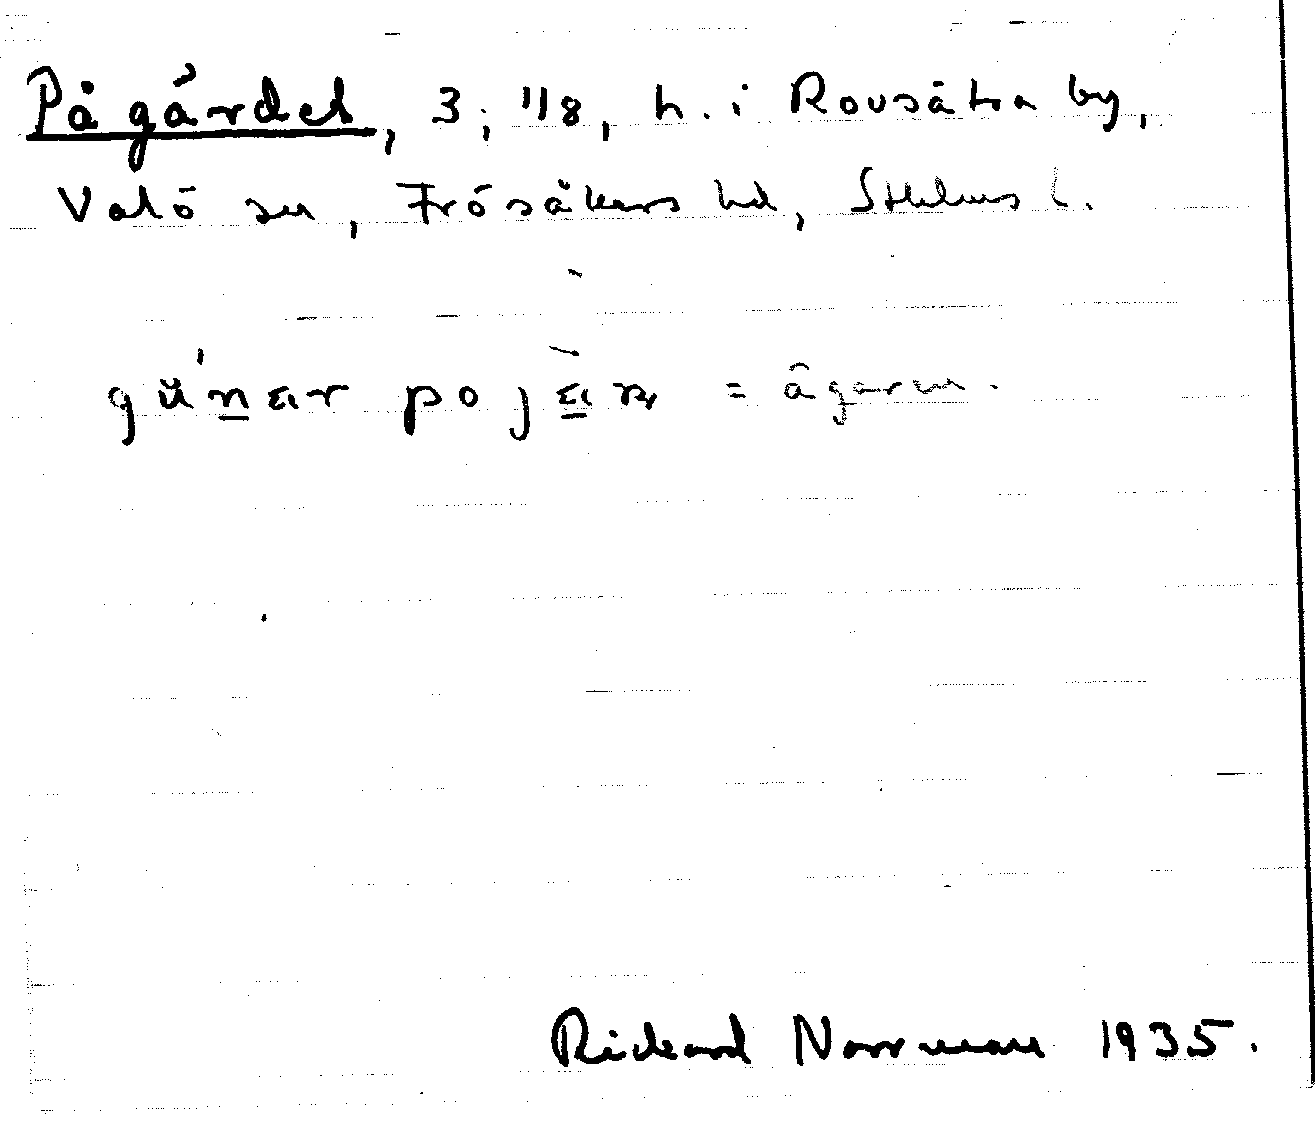 På gärdet, 3; 1/8, h. i Rovsätra by,
Valö sn, Frösåkers hd, Sthlms l.
gu̇nar pojæn = ägaren.
Rickard Norrman 1935.